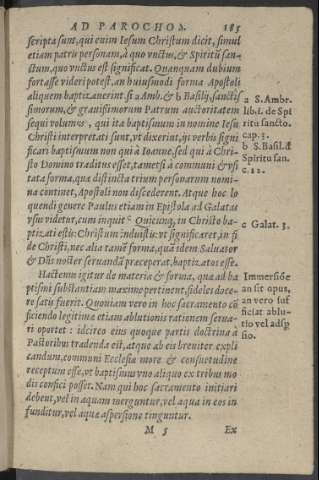 AD PAROCHOS. 185
scripta sunt, qui enim Iesum Christum dicit, simul
etiam patru personam, à quo vnctus, & Spiritũ san-
ctum, quo vnctus est significat. Quanquam dubium
fortasse videri potest, an huiusmodi forma Apostoli
aliquem baptizauerint. si a Amb. & b Basilij, sanctis
simorum, & grauissimorum Patrum auctoritatem
sequi volumus, qui ita baptismum in nomine Iesu
Christi interpretati sunt, vt dixerint, ijs verbis signi
ficari baptismum non qui à Ioanne, sed qui à Chri-
sto Domino traditus esset, tametsi à communi & vsi
tata forma, qua distincta trium personarum nomi-
na continet, Apostoli non discederent. Atque hoc lo
quendi genere Paulus etiam in Epistola ad Galatas
vsus videtur, cum inquit c Quicunq, in Christo bap-
tizati estis: Christum induistis: vt significaret, in fi
de Christi, nec alia tamẽ forma, quã idem Saluator
& Dñs noster seruandã præceperat, baptizatos esse.
a S. Ambr.
lib. 1. de Spi
ritu sancto.
cap. 3.
b S. Basil. d
Spiritu san.
c. 12.
c Galat. 3.
Hactenus igitur de materia & forma, quæ ad ba
ptismi substantiam maximè pertinent, fideles doce-
re satis fuerit. Quoniam vero in hoc sacramento cõ
ficiendo legitimæ etiam ablutionis rationem serua-
ri oportet: idcirco eius quoque partis doctrina à
Pastoribus tradenda est, atque ab eis breuiter expli
candum, communi Ecclesiæ more & consuetudine
receptum esse, vt baptismus vno aliquo ex tribus mo
dis confici possit. Nam qui hoc sacramento initiari
debent, vel in aquam merguntur, vel aqua in eos in
funditur, vel aquæ aspersione tinguntur.
Immersióe
an sit opus,
an vero suf
ficiat ablu-
tio vel adsp
sio.
M 5 Ex